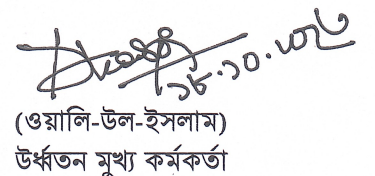 ১৮.১০.২০১৮
(ওয়ালি-উল-ইসলাম)
উর্ধ্বতন মুখ্য কর্মকর্তা